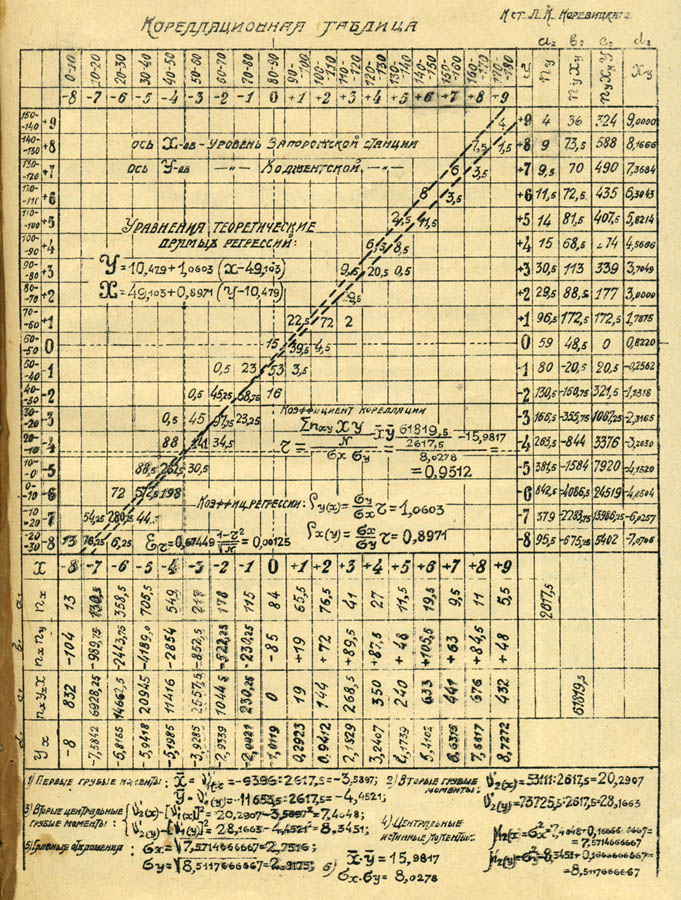 Кореляционная таблица
К ст. Л. К. Коревицкаго
a₂ b₂ c₂ d₂
0-10 10-20 20-30 30-40 40-50 50-60 60-70 70-80 80-90 90-100 100-110 110-120 120-130 130-140 140-150 150-160 160-170 170-180 ny nyXy nyXyY Xy
-8 -7 -6 -5 -4 -3 -2 -1 0 +1 +2 +3 +4 +5 +6 +7 +8 +9
150-140 +9 4 +9 4 36 324 9,0000
140-130 +8 ось X-ов - уровень Запорожской станции 7,5 1,5 +8 9 73,5 588 8,1666
130-120 +7 ось У-ов — " — Ходжентской — " — 6 3,5 +7 9,5 70 490 7,3684
120-110 +6 8 3,5 +6 11,5 72,5 435 6,3043
110-100 +5 Уравнения теоретические 2,5 11,5 +5 14 81,5 407,5 5,8214
прямых регрессий:
100-90 +4 6,5 8,5 +4 15 68,5 274 4,5666
90-80 +3 У=10,479+1,0603 (X-49,103) 9,5 20,5 0,5 +3 30,5 113 339 3,7049
80-70 +2 X=49,103+0,8971 (У-10,479) 9,5 +2 29,5 88,5 177 3,0000
70-60 +1 22,5 72 2 +1 96,5 172,5 172,5 1,7875
60-50 0 15 39,5 4,5 0 59 48,5 0 0,8220
50-40 -1 0,5 23 53 3,5 -1 80 -20,5 20,5 -0,2562
40-30 -2 0,5 45,25 68,75 16 -2 130,5 -160,75 321,5
30-20 -3 0,5 45 97,75 23,25 -3 166,5 -355,75 1067,25 -2,1365
Коэффициент кореляции
20-10 -4 88 141 34,5 -4 263,5 -844 3376 -3,2030
τ = Σnxy XY / N - X̄Ȳ / σx σy = 61819,5 / 2617,5 - 15,9817 / 8,0278 = 0,9512
10-0 -5 88,5 262,5 30,5 -5 381,5 -1584 7920 -4,1520
0-10 -6 72 572,5 198 -6 842,5 -4086,5 24519 -4,8504
Коэффиц. регрессии: ρy(x) = σy/σx τ = 1,0603
10-20 -7 54,25 280,75 44 -7 379 -2283,75 15986,25 -6,0257
ρx(y) = σx/σy τ = 0,8971
20-30 -8 13 76,25 6,25 Eτ = 0,67449 1-τ²/√N = 0,00125 -8 95,5 -675,25 5402 -7,0706
X -8 -7 -6 -5 -4 -3 -2 -1 0 +1 +2 +3 +4 +5 +6 +7 +8 +9
nx 13 130,5 358,5 705,5 549 217 178 115 84 65,5 76,5 41 27 11,5 19,5 9,5 11 5,5 2617,5
nx ny -104 -989,75 -2443,75 -4189,0 -2854 -852,5 -522,25 -230,25 -85 +19 +72 +89,5 +87,5 +48 +105,5 +63 +84,5 +48
nxYxX 832 6928,25 14662,5 20945 11416 2557,5 1044,5 230,25 0 19 144 268,5 350 240 633 441 676 432 61819,5
Yx -8 -7,5842 -6,8165 -5,9418 -5,1985 -3,9285 -2,9339 -2,0021 -1,0119 0,2923 0,9412 2,1829 3,2407 4,1739 5,4102 6,6315 7,6817 8,7272
1) Первые грубые моменты: X̄ = ν'₁(x) = -9396:2617,5 = -3,5897;
Ȳ = ν'₁(y) = -11653,5:2617,5 = -4,4521;
2) Вторые грубые моменты: ν'₂(x) = 53111:2617,5 = 20,2907
ν'₂(y) = 73725,5:2617,5 = 28,1663
3) Вторые центральные грубые моменты: ν'₂(x) - [ν'₁(x)]² = 20,2907 - 3,5897² = 7,4048;
ν'₂(y) - [ν'₁(y)]² = 28,1663 - 4,4521² = 8,3451;
4) Центральные истинные моменты: μ₂(x) = σx² = 7,4048+0,1666666667 = 7,5714666667
μ₂(y) = σy² = 8,3451+0,1666666667 = 8,5117666667
5) Главные отклонения: σx = √7,5714666667 = 2,7516;
σy = √8,5117666667 = 2,9175;
6) X̄·Ȳ = 15,9817
σx·σy = 8,0278